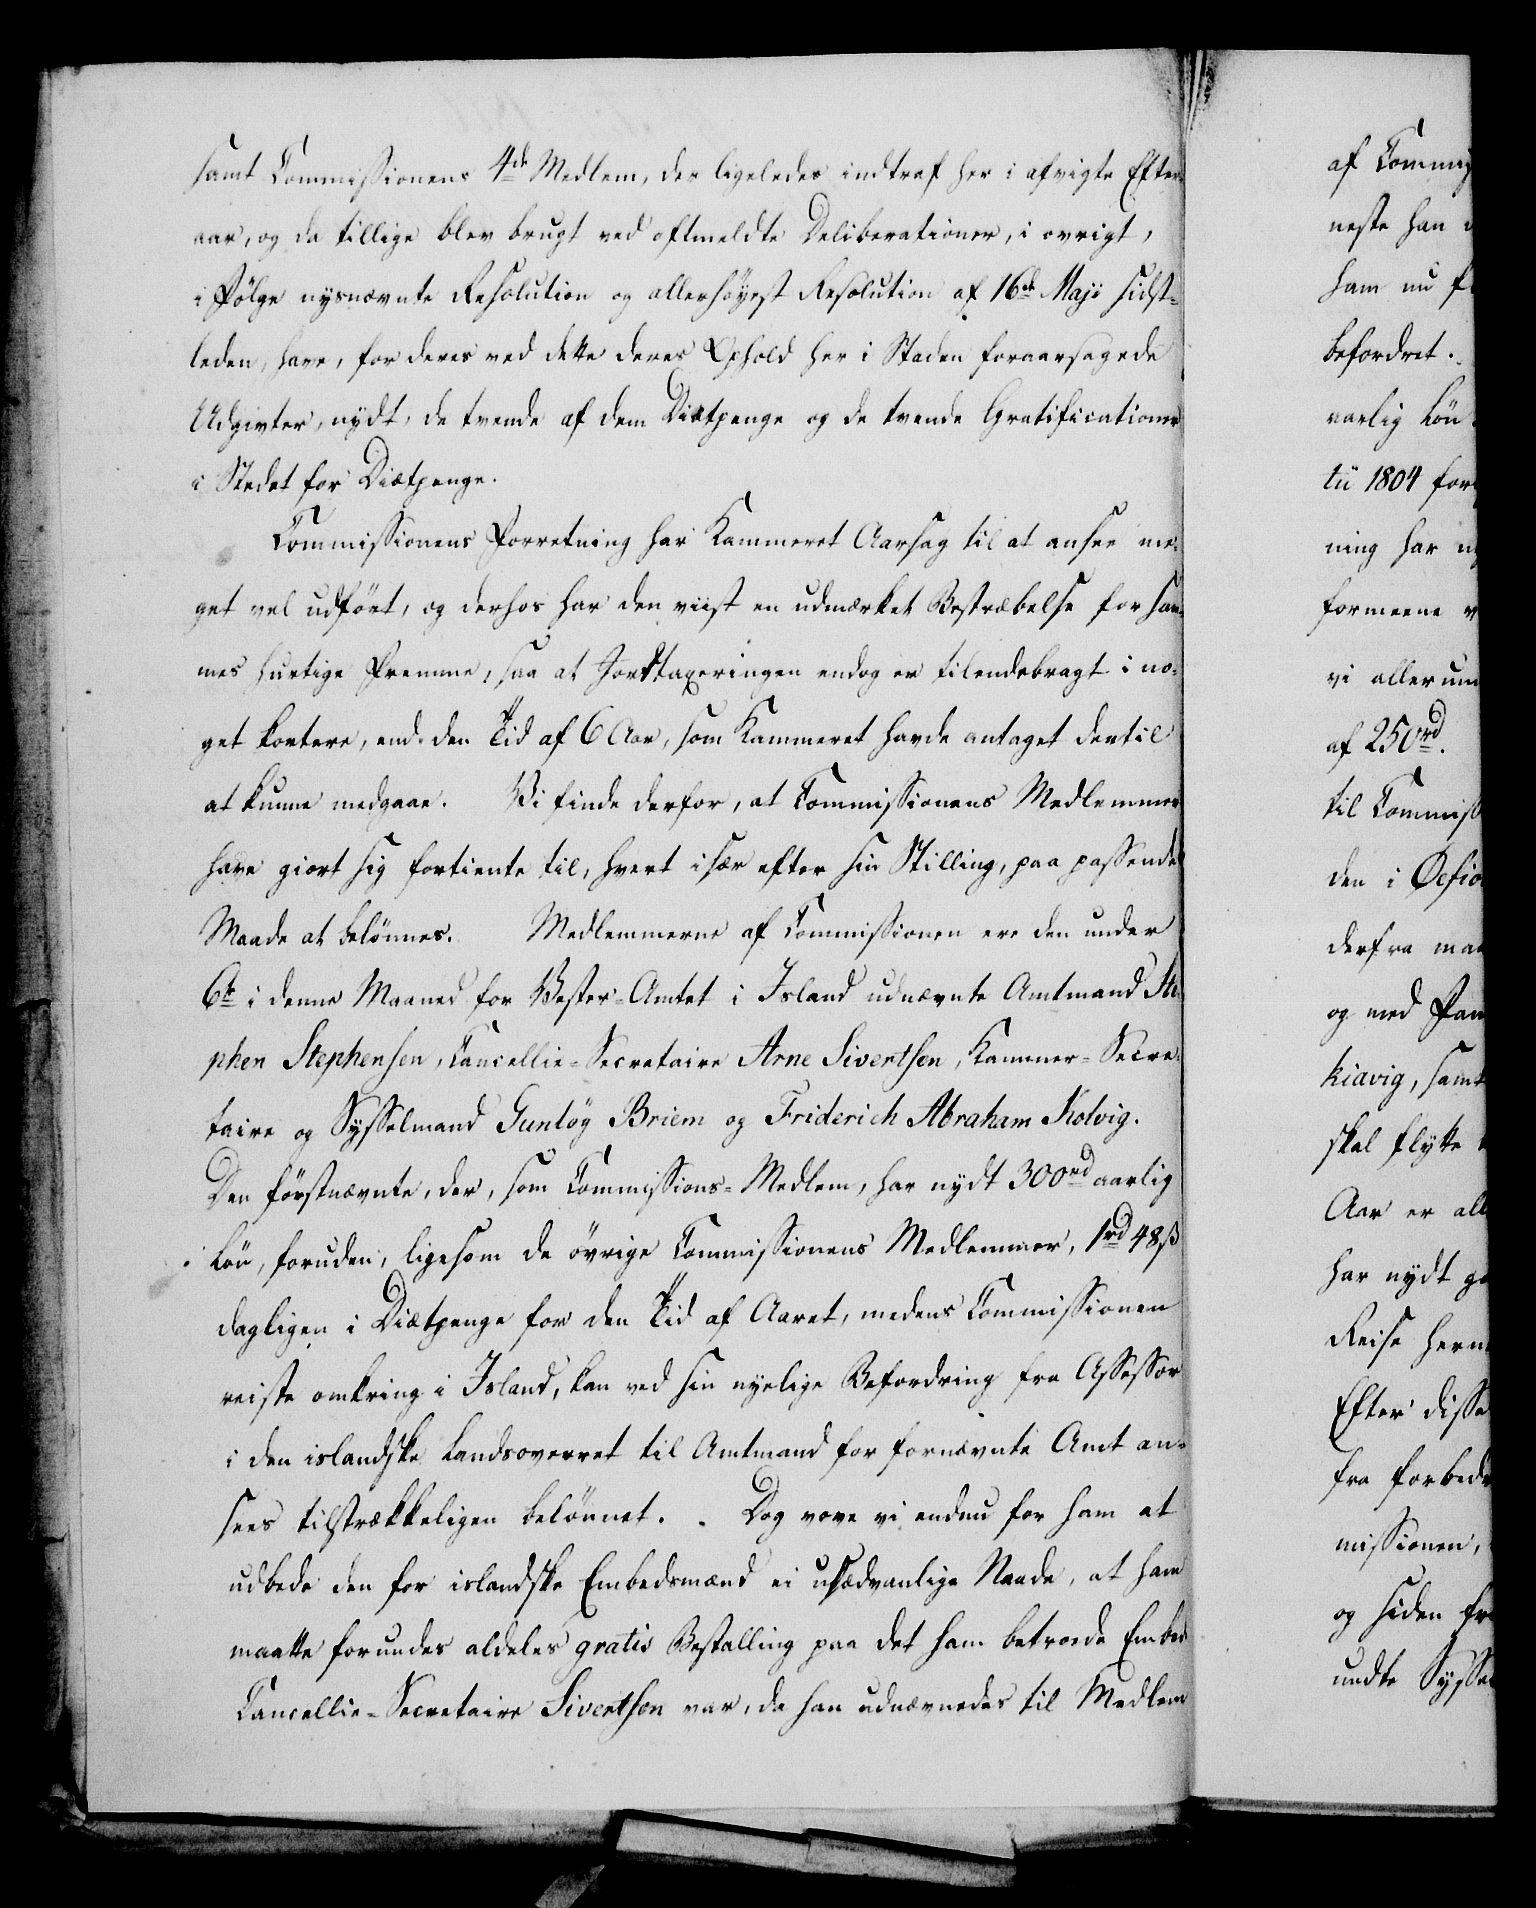 samt Commissionens 4de Medlem, der ligeledes indtraf her i afvigte Efter-
aar, og da tillige blev brugt ved oftmeldte Deliberationer, i øvrigt,
i Følge nysnævnte Resolution og allerhöyest Resolution af 16de Maji sidst-
leden, have, for deres ved dette deres Ophold her i Staden foraarsagede
Udgivter, nydt, de tvende af dem Diætpenge og de tvende Gratificationer
i Stedet for Diætpenge.
Commissionens Forretning har Kammeret Aarsag til at ansee me-
get vel udfört, og derhos har den viist en udmærket Bestræbelse for sam-
mes hurtige Fremme, saa at Jordtaxeringen endog er tilendebragt i no-
get kortere, end den Tid af 6 Aar, som Kammeret havde antaget dertil
at kunne medgaae. Vi finde derfor, at Commissionens Medlemmer
have giort sig fortiente til, hvert især efter sin Stilling, paa passende
Maade at belönnes. Medlemmerne af Commissionen ere den under
6te i denne Maaned for Vester-Amtet i Island udnævnte Amtmand Ste-
phen Stephensen, Cancellie-Secretaire Arne Sivertsen, Kammer-Secre-
taire og Sysselmand Gunlöy Briem og Friderich Abraham Kolvig.
Den förstnævnte, der, som Commissions-Medlem, har nydt 300rd aarlig
Lön, foruden, ligesom de övrige Commissionens Medlemmer, 1rd 48ß
dagligen i Diætpenge for den Tid af Aaret, medens Commissionen
reiste omkring i Island, kan ved sin nyelige Befordring fra Assessor
i den islandske Landsoverret til Amtmand for fornævnte Amt an-
sees tilstrækkeligen belönnet. Dog vove vi endnu for ham at
udbede den for islandske Embedsmænd ei usædvanlige Naade, at ham
maatte forundes aldeles gratis Bestalling paa det ham betroede Embed
Cancellie-Secretaire Sivertsen var, da han udnævnedes til Medlem
af Commis
neste han
ham nu
befordret.
varlig Lön
tii 1804 for
ning har
formeene
vi allerun
af 250rd.
til Commiss
den i Öefio
derfra maa
og med Fam
kiavig, samt
skal flytte
Aar er all
har nydt
Reise hern
Efter disse
fra forbed
missionen,
og siden fr
undte Sysse